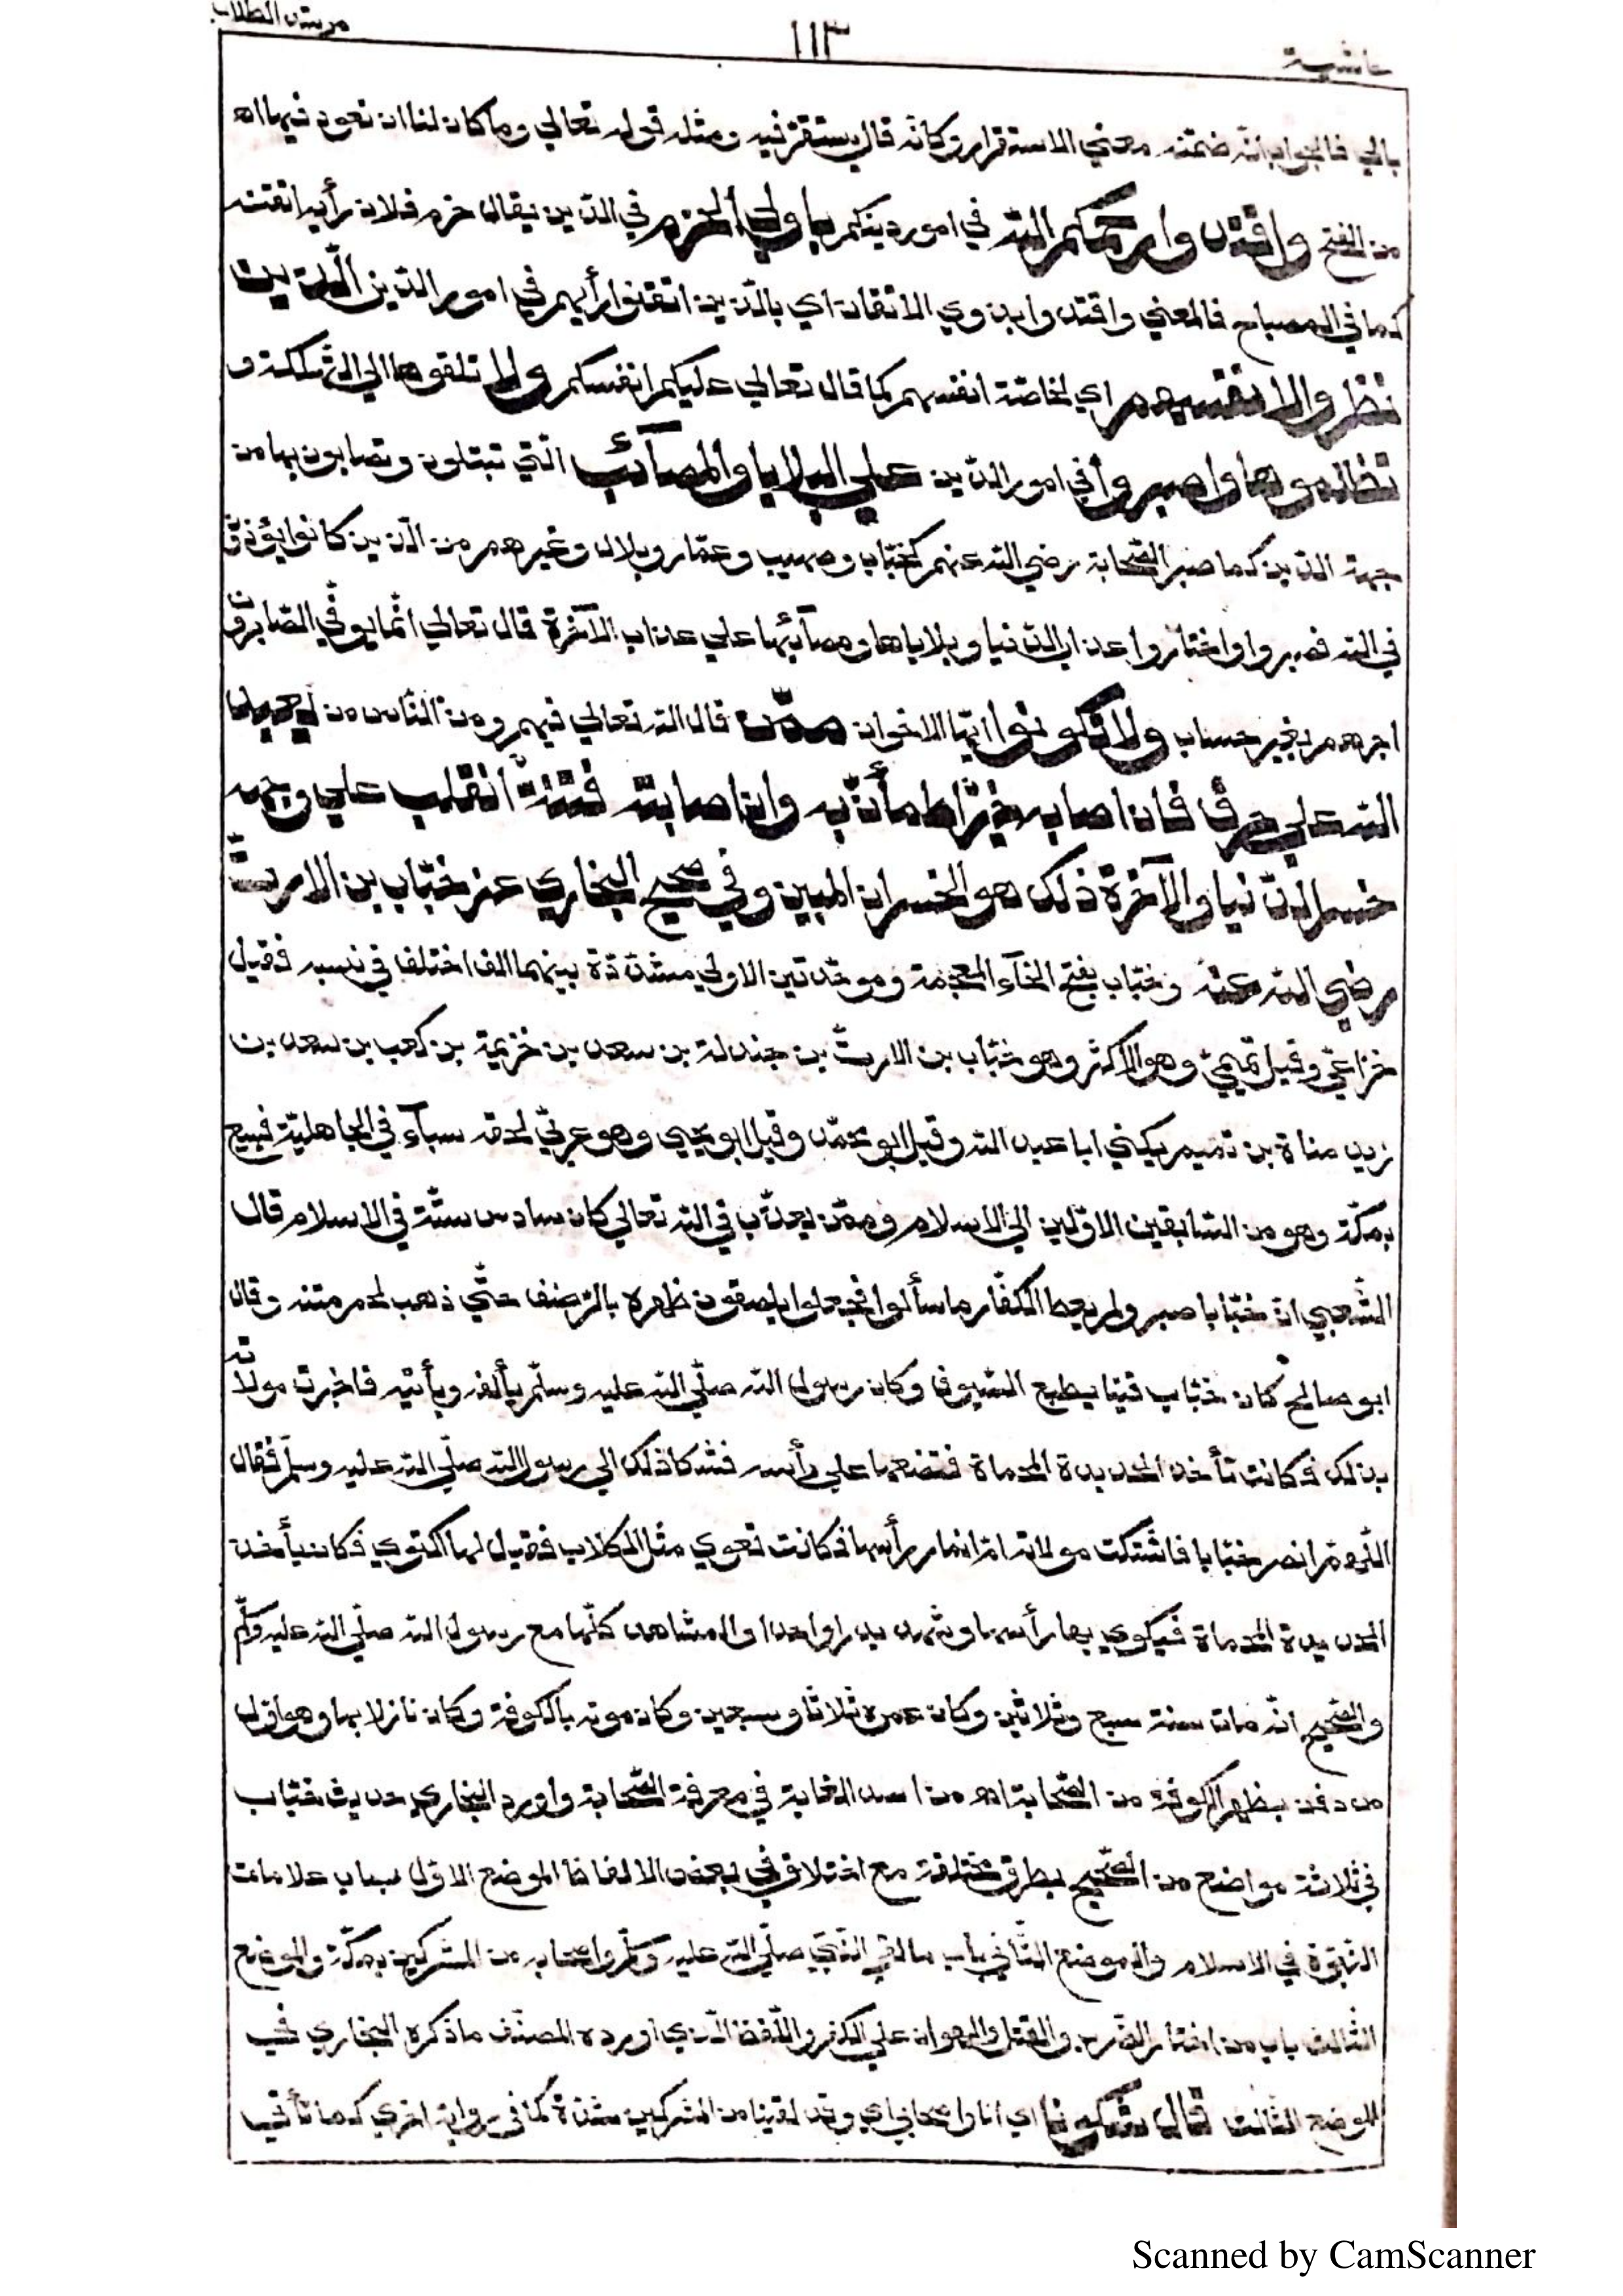 حاشية ١١٣ مرشد الطلاب
بالي فالجواب انّه ضمّنه معني الاستقرار وكانّه قال يستقرّ فيه ومثله قوله تعالي وما كان لنا ان نعود فيها اه
من الفتح واقتدوا رحمكم الله في امور دينكم باولي الحزم في الدّين يقال حزم فلان رأيه اتقنه
كما في المصباح فالمعني واقتدوا بذوي الاتقان اي بالّذين اتقنوا رأيهم في امور الدّين الّذين
نظروا لانفسهم اي لخاصّة انفسهم كما قال تعالي عليكم انفسكم ولا تلقوها الي التّهلكة و
تظلموها واصبروا في امور الدّين علي البلايا والمصآئب الّتي تبتلون وتصابون بها من
جهة الدّين كما صبر الصّحابة رضي الله عنهم كخبّاب وصهيب وعمّار وبلال وغيرهم من الّذين كانوا يؤذون
في الله فصبروا واختاروا عذاب الدّنيا وبلاياها ومصآئبها علي عذاب الآخرة قال تعالي انّما يوفّي الصّابرون
اجرهم بغير حساب ولا تكونوا ايّها الاخوان ممّن قال الله تعالي فيهم ومن النّاس من يعبد
الله علي حرف فان اصابه خيرٌ اطمأنّ به وان اصابته فتنةٌ انقلب علي وجهه
خسر الدّنيا والآخرة ذلك هو الخسران المبين وفي صحيح البخاري عن خبّاب بن الارتّ
رضي الله عنه وخبّاب بفتح الخآء المعجمة وموحّدتين الاولي مشدّدة بينهما الف اختلف في نسبه فقيل
خزاعيّ وقيل تميميّ وهو الاكثر وهو خبّاب بن الارتّ بن جندلة بن سعد بن خزيمة بن كعب بن سعد بن
زيد مناة بن تميم يكني ابا عبد الله وقيل ابو محمّد وقيل ابو يحيي وهو عربيّ لحقه سبآء في الجاهليّة فبيع
بمكّة وهو من السّابقين الاوّلين الي الاسلام وممّن يعذّب في الله تعالي كان سادس ستّة في الاسلام قال
الشّعبي انّ خبّابا صبر ولم يعط الكفّار ما سألوا فجعلوا يلصقون ظهره بالرّضف حتّي ذهب لحم متنه وقال
ابو صالح كان خبّاب قينا يطبع السّيوف وكان رسول الله صلّي الله عليه وسلّم يألفه ويأتيه فاخبرت مولاته
بذلك فكانت تأخذ الحديدة المحماة فتضعها علي رأسه فشكا ذلك الي رسول الله صلّي الله عليه وسلّم فقال
اللّهمّ انصر خبّابا فاشتكت مولاته امّ انمار رأسها فكانت تعوي مثل الكلاب فقيل لها اكتوي فكان يأخذ
الحديدة المحماة فيكوي بها رأسها وشهد بدرا واحدا والمشاهد كلّها مع رسول الله صلّي الله عليه وسلّم
والصّحيح انّه مات سنة سبع وثلاثين وكان عمره ثلاثا وسبعين وكان موته بالكوفة وكان نازلا بها وهو اوّل
من دفن بظهر الكوفة من الصّحابة اه من اسد الغابة في معرفة الصّحابة واورد البخاري حديث خبّاب
في ثلاثة مواضع من الصّحيح بطرق مختلفة مع اختلاف في بعض الالفاظ الموضع الاوّل باب علامات
النّبوّة في الاسلام والموضع الثّاني باب ما لقي النّبيّ صلّي الله عليه وسلّم واصحابه من المشركين بمكّة والموضع
الثّالث باب من اختار الضّرب والقتل والهوان علي الكفر واللّفظ الّذي اورده المصنّف ما ذكره البخاري في
الموضع الثّالث قال شكونا اي انا واصحابي اي وقد لقينا من المشركين شدّة كما في رواية اخري كما تأتي
Scanned by CamScanner